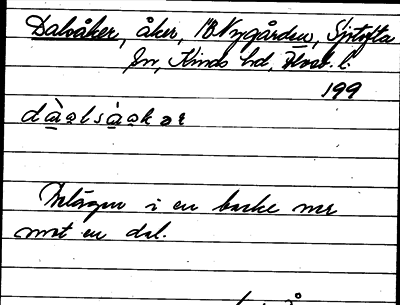 Dalsåker, åker, 1B Nygården, Sjötofta
sn, Kinds hd, Älvsb. l.
199
dàalsàakər
Belägen i en backe ner
mot en dal.